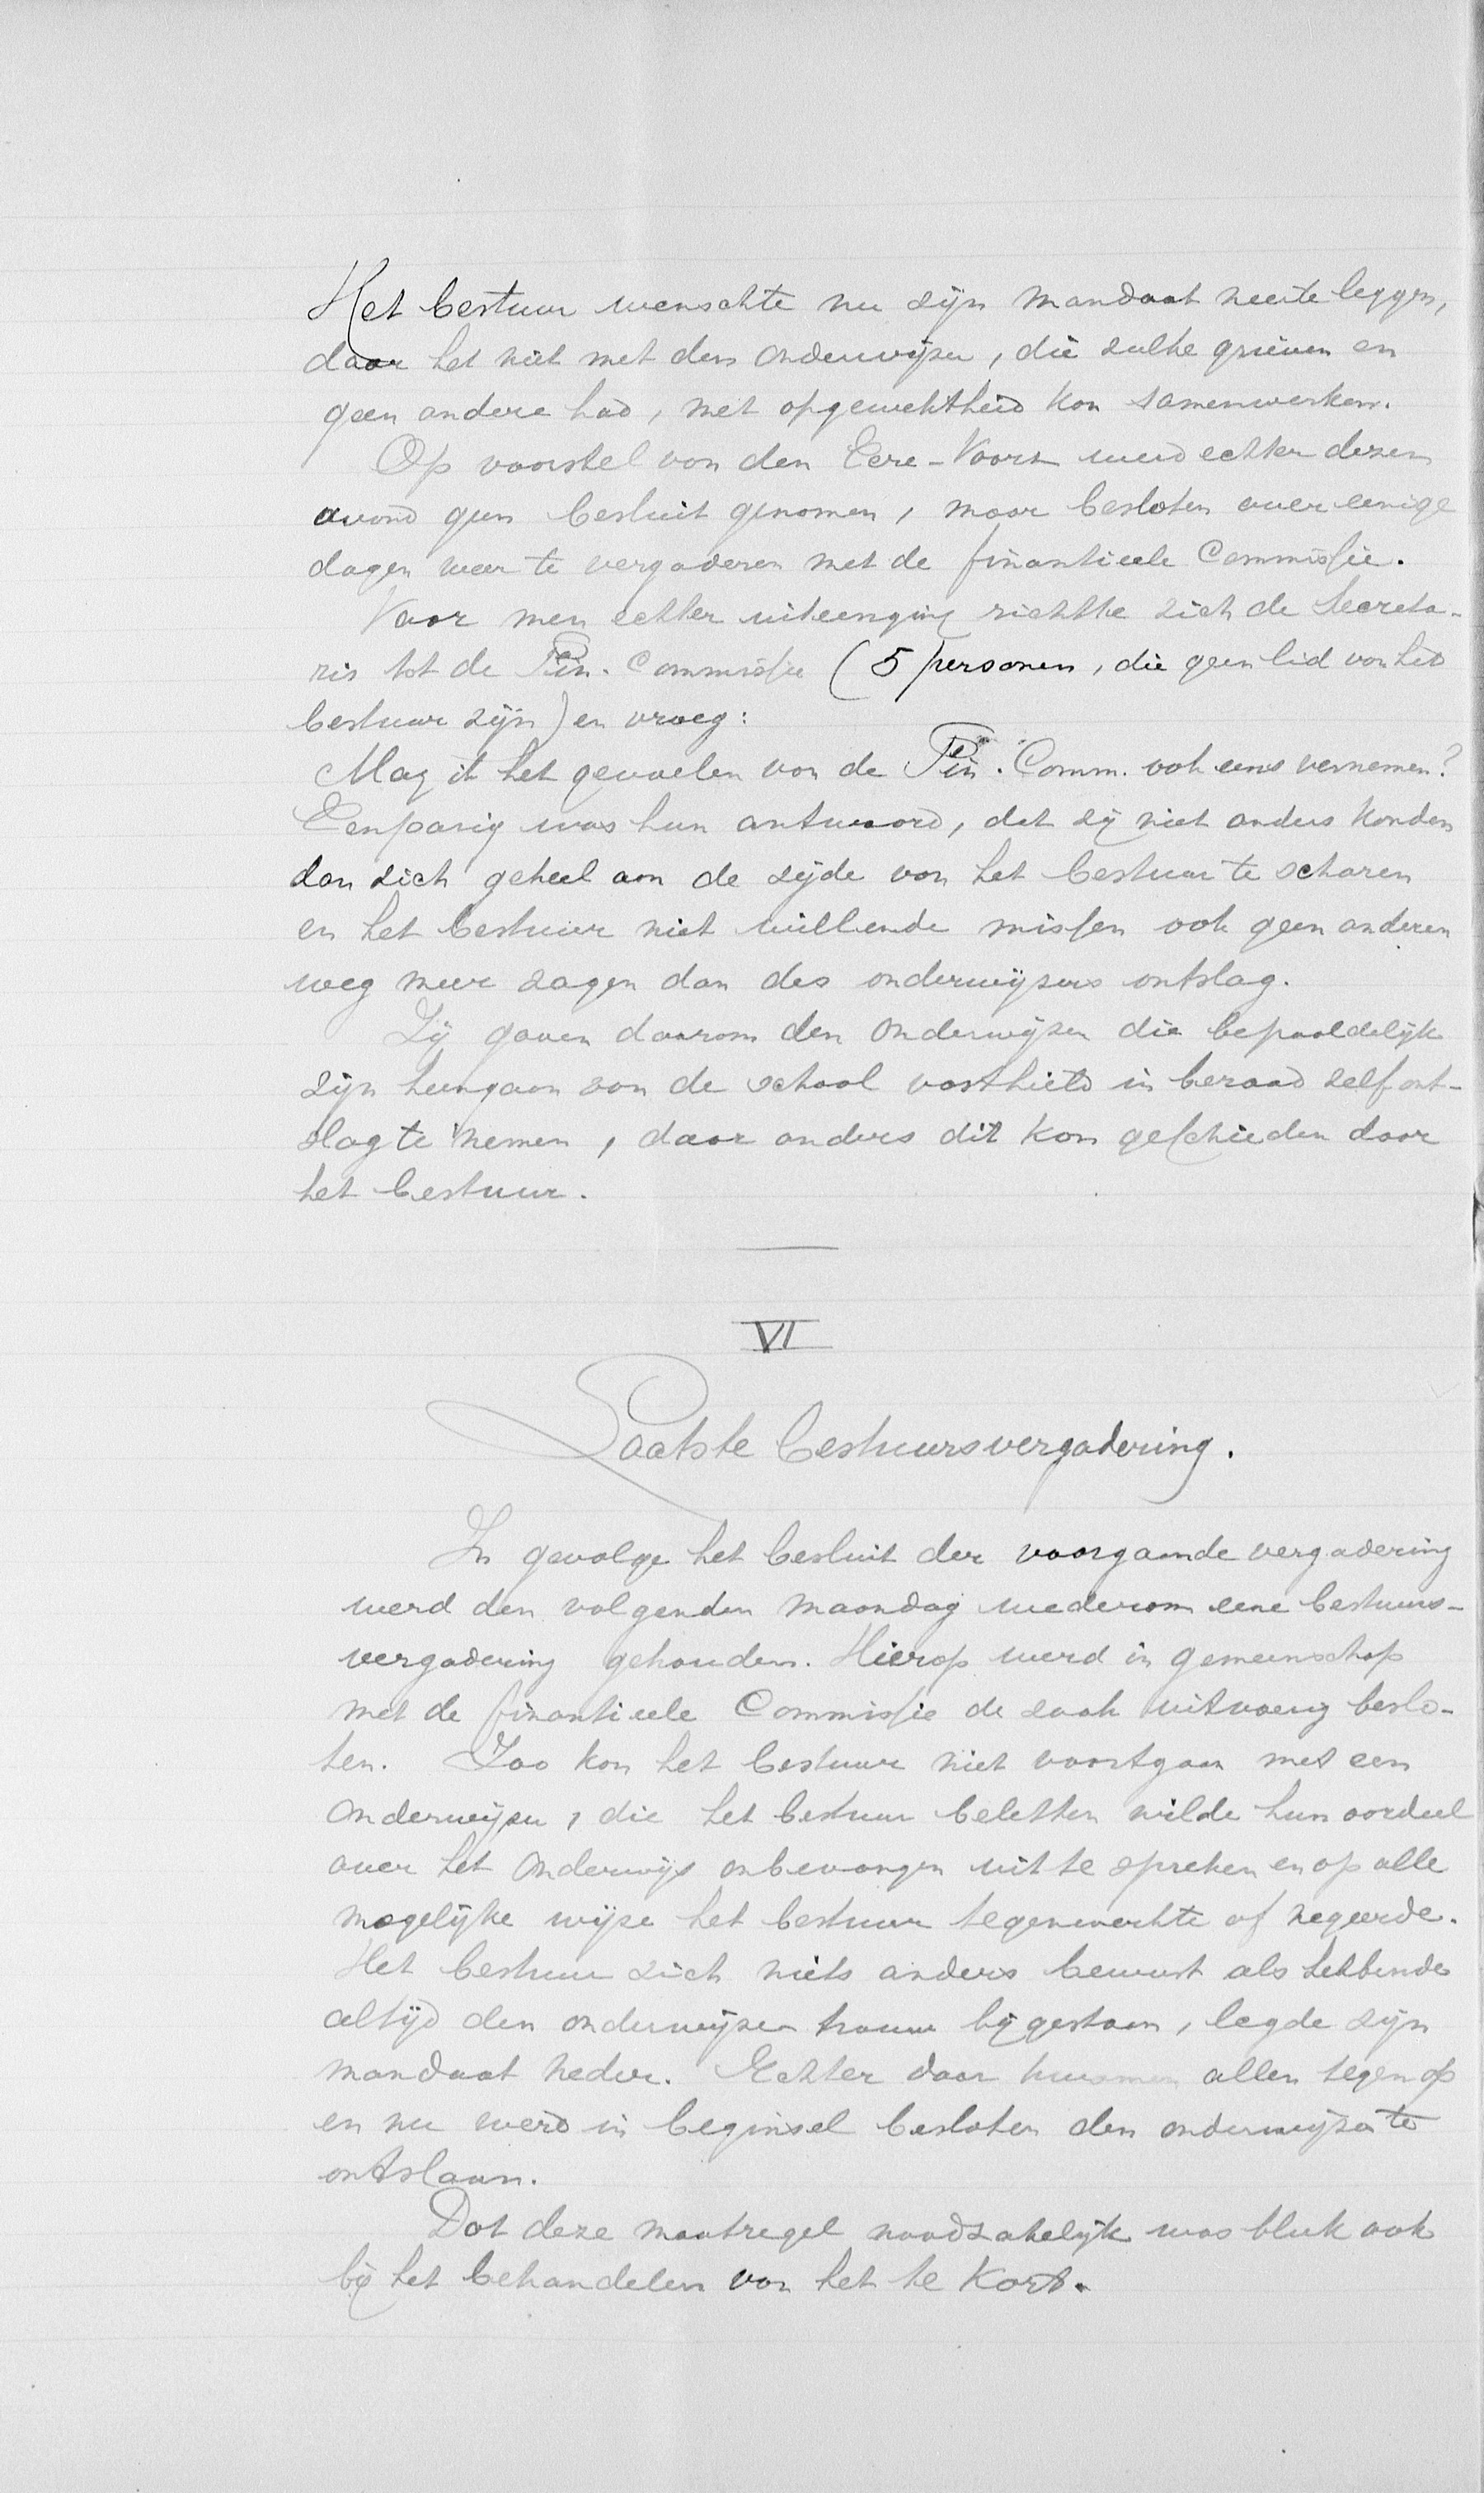 Het bestuur wenschte nu zijn mandaat neerteleggen,
daar het niet met den onderwijzer, die zulke grieven en
geen andere had, met opgewektheid kon samenwerken.
Op voorstel van den Eere-Voorz werd echter dezen
avond geen besluit genomen, maar besloten over eenige
dagen weer te vergaderen met de finantieele Commissie.
Voor men echter uiteenging richtte zich de Secreta-
ris tot de Fin. Commissie (5 personen, die geen lid van het
bestuur zijn) en vroeg:
Mag ik het gevoelen van de Fin. Comm. ook eens vernemen?
Eenparig was hun antwoord, dat zij niet anders konden
dan zich geheel aan de zijde van het bestuur te scharen
en het bestuur niet willende missen ook geen anderen
weg meer zagen dan des onderwijzers ontslag.
Zij gaven daarom den onderwijzer die bepaaldelijk
zijn heengaan van de school vasthield in beraad zelf ont-
slag te nemen, daar anders dit kon geschieden door
het bestuur.
VI
Laatste bestuursvergadering.
In gevolge het besluit der voorgaande vergadering
werd den volgenden Maandag wederom eene bestuurs-
vergadering gehouden. Hierop werd in gemeenschap
met de finantieele Commissie de zaak uitvoerig beslo-
ten. Zoo kon het bestuur niet voortgaan met een
onderwijzer, die het bestuur beletten wilde hun oordeel
over het onderwijs onbevangen uit te spreken en op alle
mogelijke wijze het bestuur tegenwerkte of negeerde.
Het bestuur zich niets anders bewust als hebbende
altijd den onderwijzer trouw bijgestaan, legde zijn
mandaat neder. Echter daar kwamen allen tegen op
en nu werd in beginsel besloten den onderwijzer te
ontslaan.
Dat deze maatregel noodzakelijk was bleek ook
bij het behandelen van het te kort.